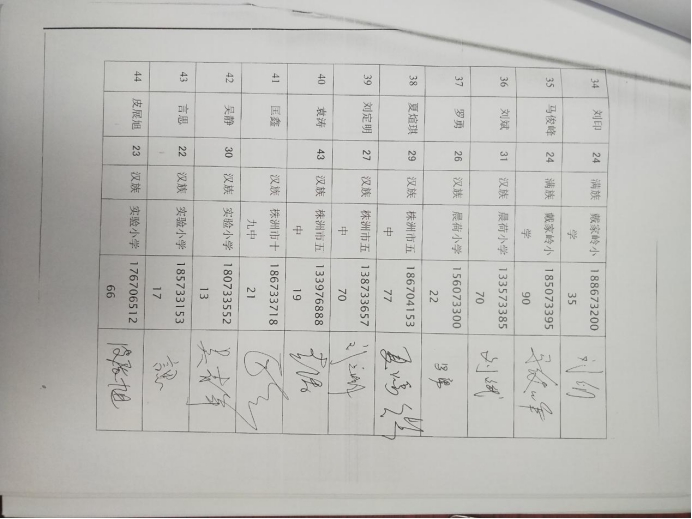 34 刘印 24 满族 戴家岭小 188673200 刘印
学 35
35 马俊峰 24 满族 戴家岭小 185073395 马俊峰
学 90
36 刘斌 31 汉族 晨荷小学 133573385 刘斌
70
37 罗勇 26 汉族 晨荷小学 156073300 罗勇
22
38 夏煊琪 29 汉族 株洲市五 186704153 夏煊琪
中 77
39 刘定明 27 汉族 株洲市五 138733657 刘定明
中 70
40 袁涛 43 汉族 株洲市五 133976888 袁涛
中 19
41 匡鑫 汉族 株洲市十 186733718
九中 21
42 吴静 30 汉族 实验小学 180733552 吴静
13
43 言思 22 汉族 实验小学 185733153 言思
17
44 皮展旭 23 汉族 实验小学 176706512 皮展旭
66